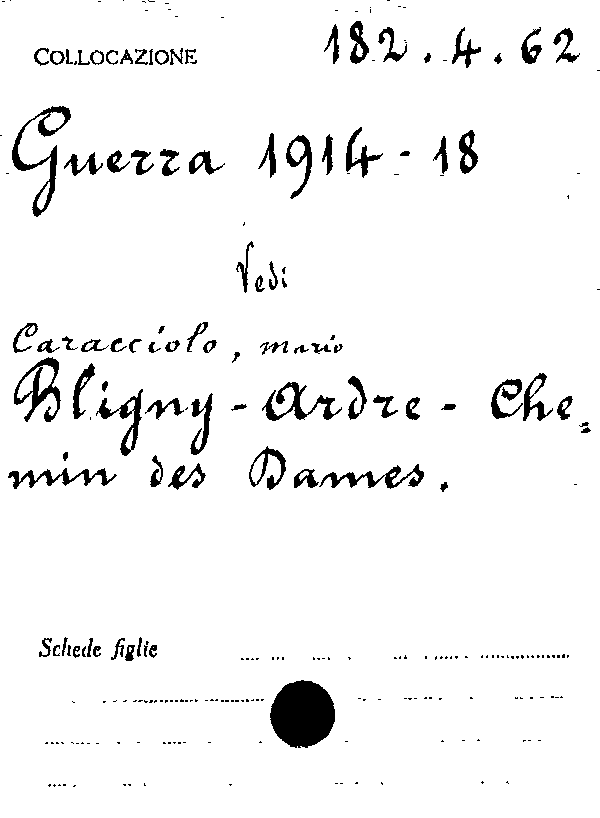 COLLOCAZIONE 182.4.62
Guerra 1914-18
Vedi
Caracciolo, Mario
Bligny - Ardre - Che=
min des Dames.
Schede figlie